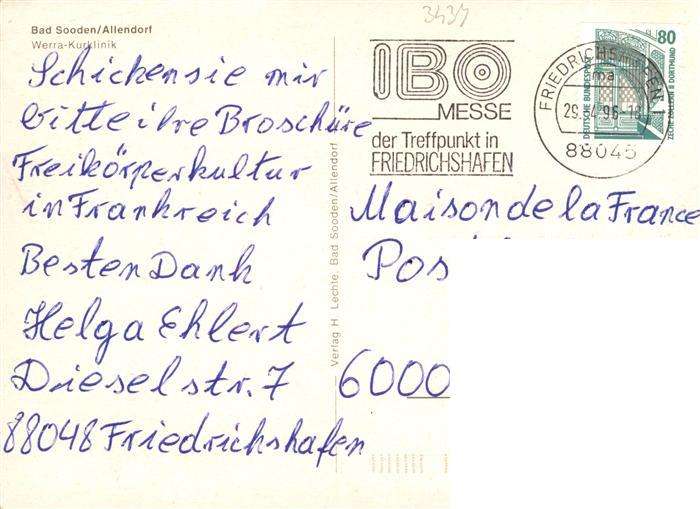 Bad Sooden/Allendorf
Werra-Kurklinik
Schicken sie mir
bitte ihre Broschüre
Freikörperkultur
in Frankreich
Besten Dank
Helga Ehlert
Dieselstr. 7
88048 Friedrichshafen
Verlag H. Lechte, Bad Sooden/Allendorf
3439
IBO
MESSE
der Treffpunkt in
FRIEDRICHSHAFEN
FRIEDRICHSHAFEN
ma
88045
80
DEUTSCHE BUNDESPOST
ZECHE ZOLLERN II DORTMUND
Maison de la France
Pos
6000